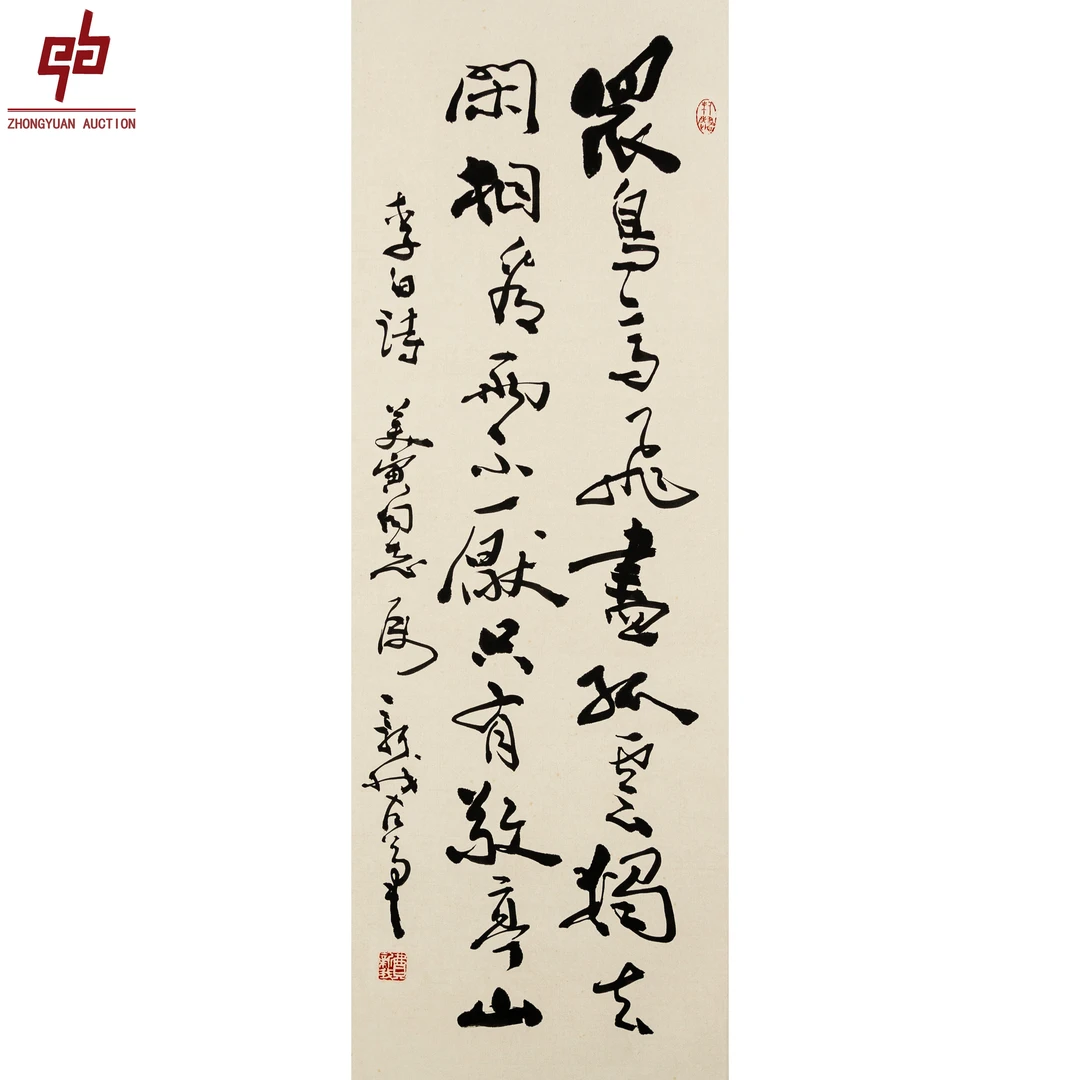 ZHONGYUAN AUCTION
眾鳥高飛盡孤雲獨去
閑相看兩不厭只有敬亭山
李白詩 美寅同志屬 新我左筆